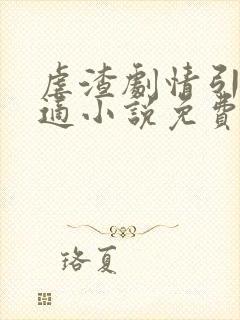 虐渣劇情引
適小說免費
珞夏